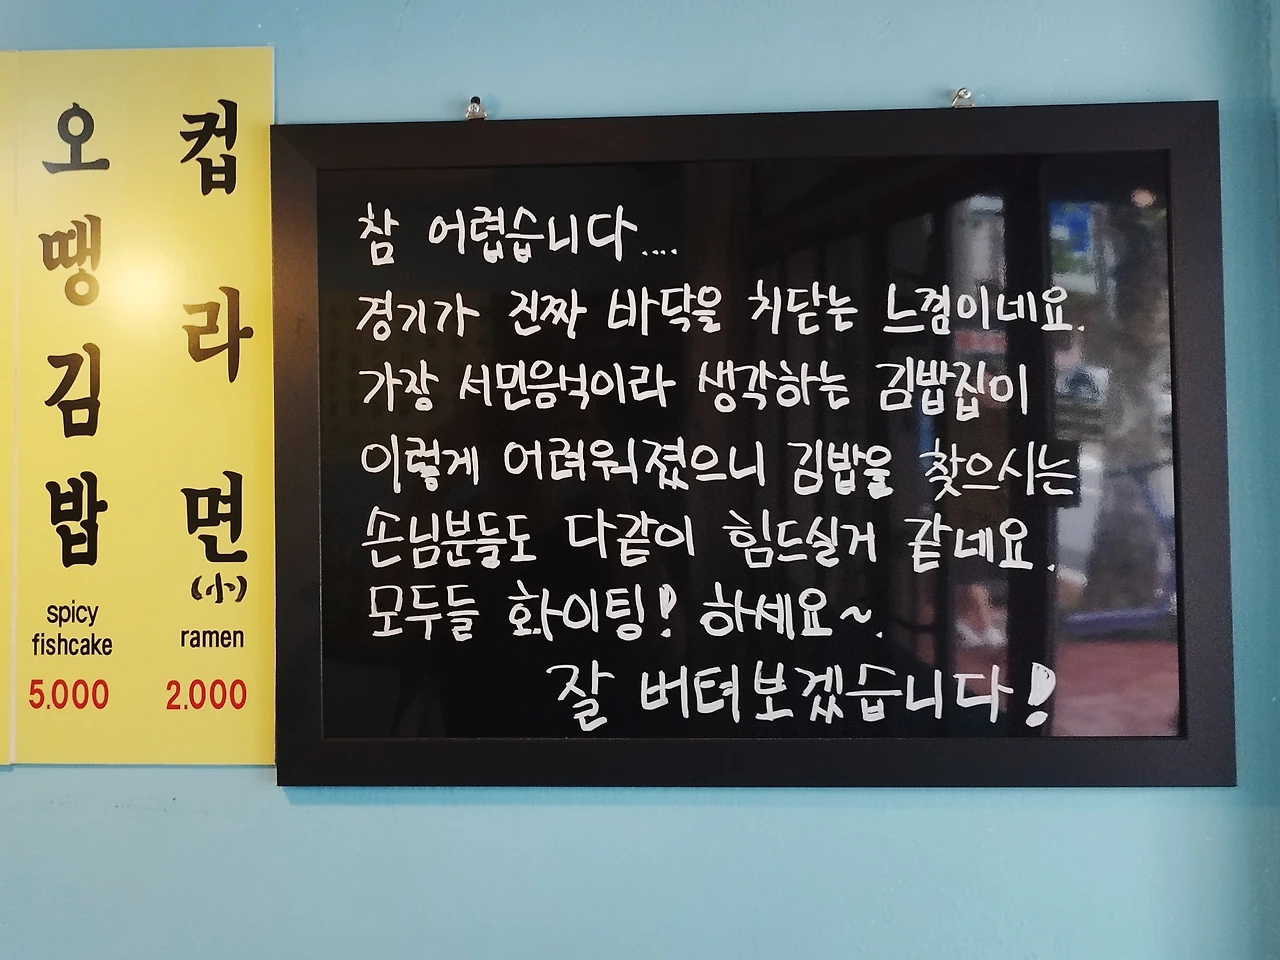 오땡김밥
spicy
fishcake
5.000
컵라면
(小)
ramen
2.000
참 어렵습니다....
경기가 진짜 바닥을 치닫는 느낌이네요.
가장 서민음식이라 생각하는 김밥집이
이렇게 어려워졌으니 김밥을 찾으시는
손님분들도 다같이 힘드실거 같네요.
모두들 화이팅! 하세요~.
잘 버텨보겠습니다!